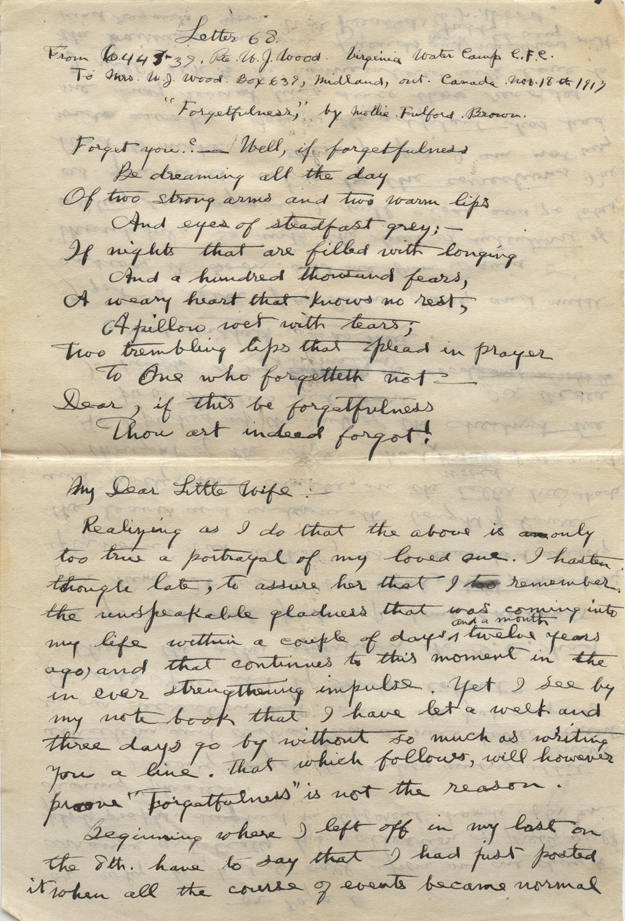 Letter 68.
From 644539, Pte. W. J. Wood. Virginia Water Camp C.F.C.
To Mrs. W. J. Wood. Box 639, Midland, ont. Canada Nov. 18th 1917
"Forgetfulness," by Mollie Fulford Brown.
Forget you.? — Well, if forgetfulness
Be dreaming all the day
Of two strong arms and two warm lips
And eyes of steadfast grey; —
If nights that are filled with longing
And a hundred thousand fears,
A weary heart that knows no rest,
A pillow wet with tears;
Two trembling lips that plead in prayer
To One who forgetteth not —
Dear, if this be forgetfulness
Thou art indeed forgot!
My Dear Little Wife :—
Realizing as I do that the above is only
too true a portrayal of my loved one. I hasten,
though late, to assure her that I remember
the unspeakable gladness that was coming into
my life within a couple of days and a month twelve years
ago, and that continues to this moment in the
in ever strengthening impulse. Yet I see by
my note book that I have let a week and
three days go by without so much as writing
you a line. That which follows, will however
prove "Forgetfulness" is not the reason.
Beginning where I left off in my last on
the 8th. have to say that I had just posted
it when all the course of events became normal